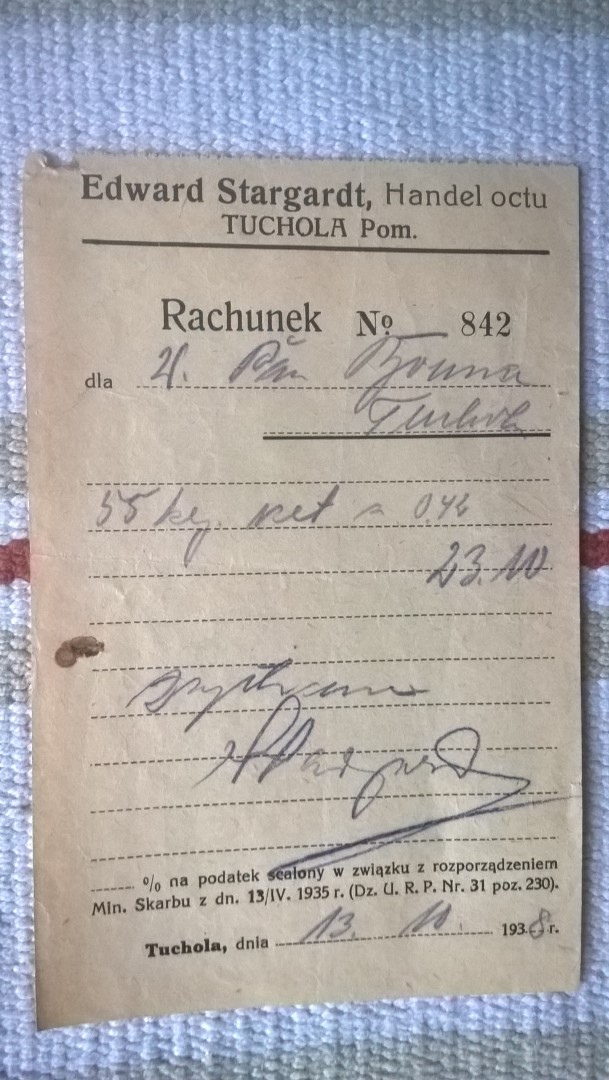 Edward Stargardt, Handel octu
TUCHOLA Pom.
Rachunek № 842
dla
Tuchola
55 kg. oct a 0.42
23.10
Stargardt
% na podatek scalony w związku z rozporządzeniem
Min. Skarbu z dn. 13/IV. 1935 r. (Dz. U. R. P. Nr. 31 poz. 230).
Tuchola, dnia 13. 10. 1938 r.